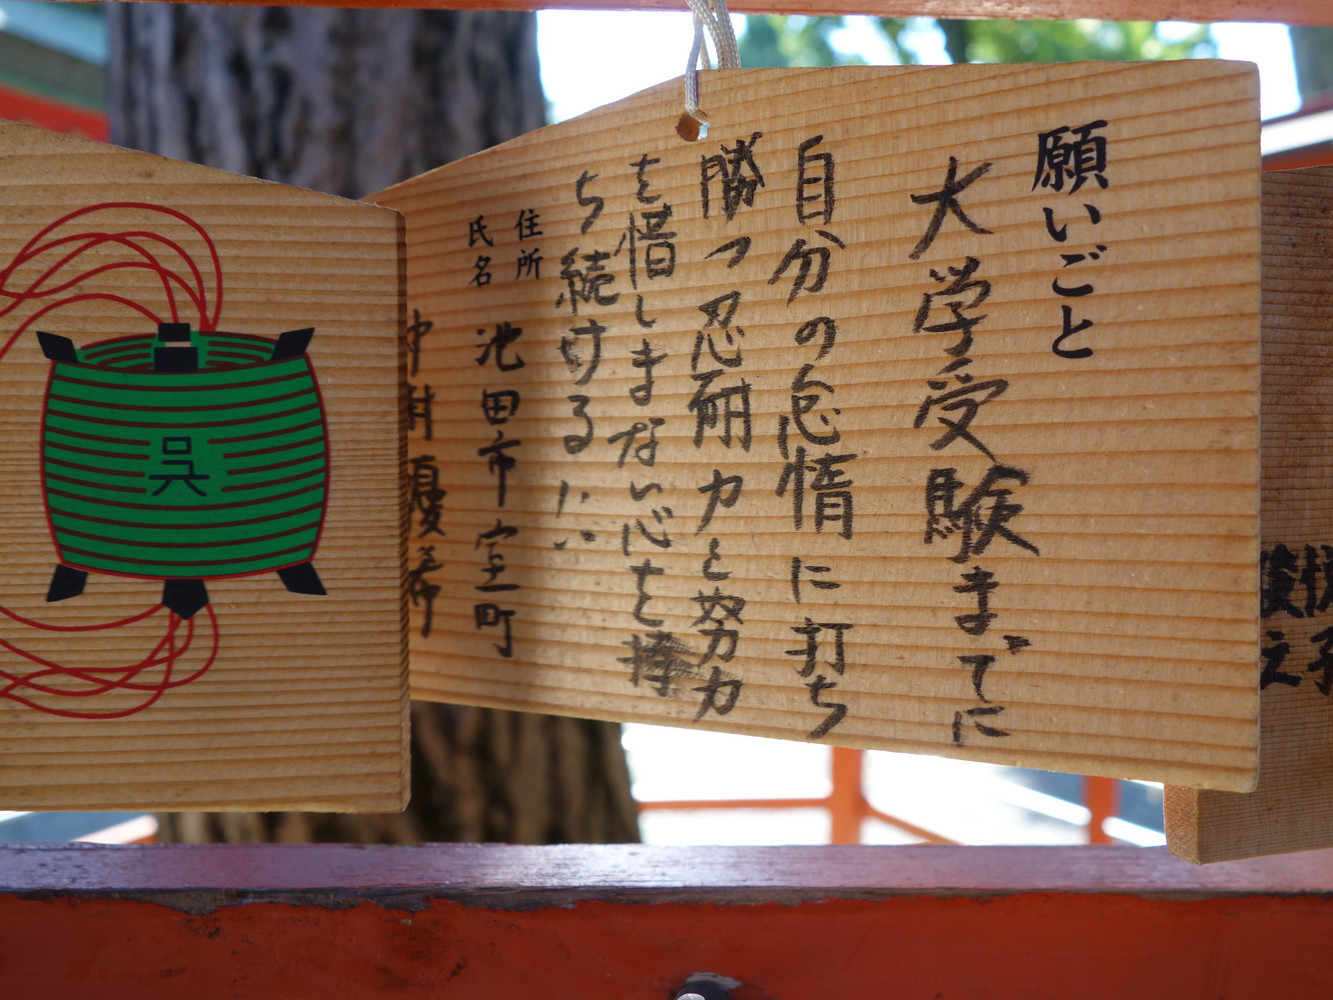 願いごと
大学受験までに
自分の怠惰に打ち
勝つ忍耐力と努力
を惜しまない心を
ち続ける
住所
氏名
池田市室町
中村優希
呉